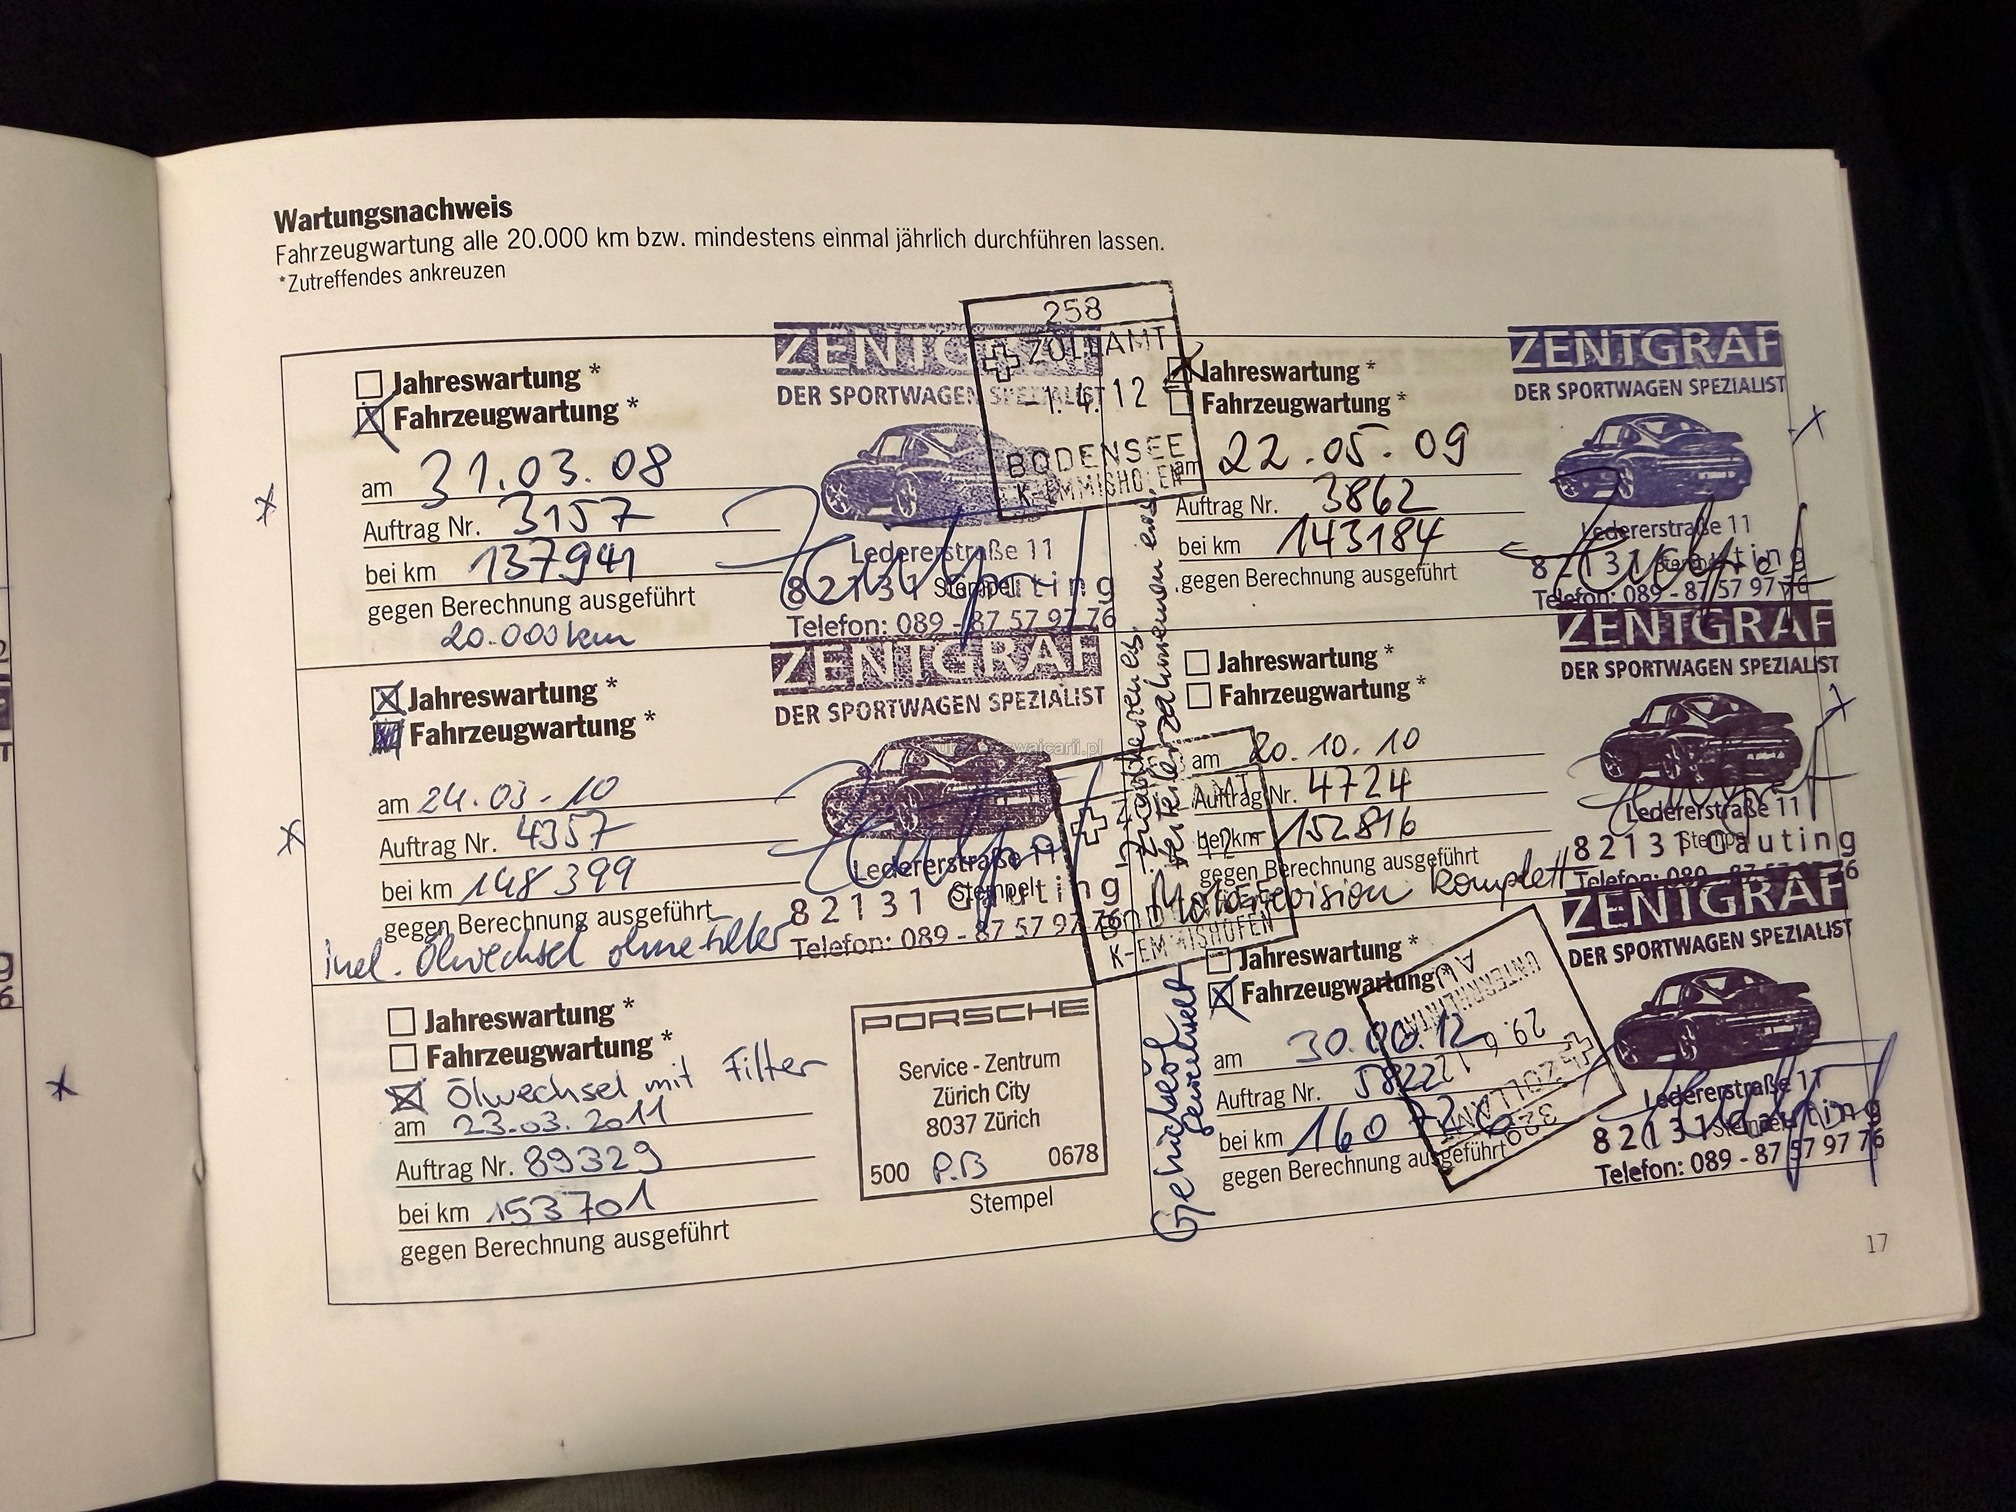 Wartungsnachweis
Fahrzeugwartung alle 20.000 km bzw. mindestens einmal jährlich durchführen lassen.
*Zutreffendes ankreuzen
Jahreswartung *
Fahrzeugwartung *
am 31.03.08
Auftrag Nr. 3157
bei km 137941
gegen Berechnung ausgeführt
20.000 km
ZENTGRAF
DER SPORTWAGEN SPEZIALIST
Ledererstraße 11
82131 Gauting
Stempel
Telefon: 089 - 87 57 97 76
258
ZOLLAMT
-1.4.12
BODENSEE
K-EMMISHOFEN
Jahreswartung *
Fahrzeugwartung *
am 22.05.09
Auftrag Nr. 3862
bei km 143184
gegen Berechnung ausgeführt
ZENTGRAF
DER SPORTWAGEN SPEZIALIST
Ledererstraße 11
82131 Gauting
Stempel
Telefon: 089 - 87 57 97 76
Jahreswartung *
Fahrzeugwartung *
am 24.03.10
Auftrag Nr. 4357
bei km 148399
gegen Berechnung ausgeführt
incl. Ölwechsel ohne Filter
ZENTGRAF
DER SPORTWAGEN SPEZIALIST
autazeszwajcarii.pl
Ledererstraße 11
Stempel
82131 Gauting
Telefon: 089 - 87 57 97 76
K-EMMISHOFEN
Jahreswartung *
Fahrzeugwartung *
am 20.10.10
Auftrag Nr. 4724
bei km 152816
gegen Berechnung ausgeführt
Motorrevision komplett
ZENTGRAF
DER SPORTWAGEN SPEZIALIST
Ledererstraße 11
Stempel
82131 Gauting
Telefon: 089 - 87 57 97 76
Jahreswartung *
Fahrzeugwartung *
Ölwechsel mit Filter
am 23.03.2011
Auftrag Nr. 89329
bei km 153701
gegen Berechnung ausgeführt
PORSCHE
Service - Zentrum
Zürich City
8037 Zürich
500 P.B 0678
Stempel
Jahreswartung *
Fahrzeugwartung
am 30.06.12
Auftrag Nr. 5822
bei km 160726
gegen Berechnung ausgeführt
ZENTGRAF
DER SPORTWAGEN SPEZIALIST
Ledererstraße 11
82131 Gauting
Stempel
Telefon: 089 - 87 57 97 76
ZOLLAMT
29.6.12
AU
Getriebeöl
gewechselt
17